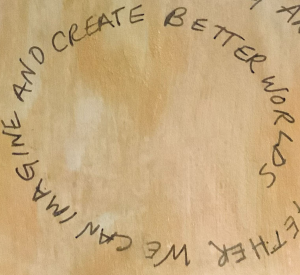 ETHER WE CAN IMAGINE AND CREATE BETTER WORLDS